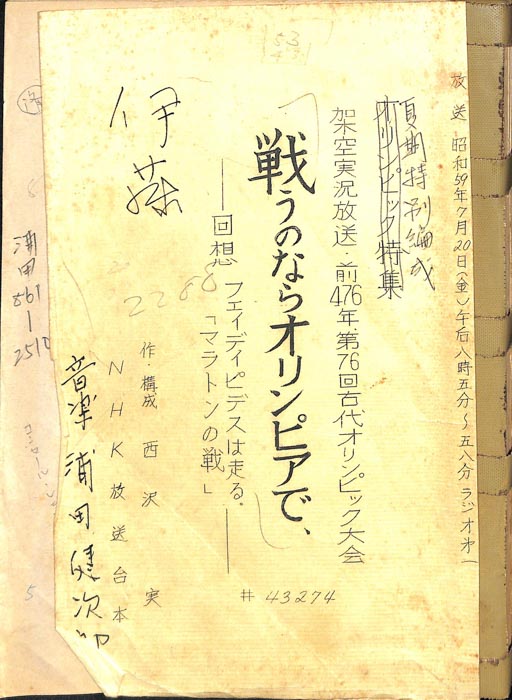 放送 昭和59年7月20日(金)午后八時五分〜五八分 ラジオ第一
夏期特別編成
オリンピック特集
架空実況放送・前476年・第76回古代オリンピック大会
戦うのならオリンピアで、
――回想 フェイディピデスは走る・――
「マラトンの戦」
作・構成 西沢 実
NHK放送台本
音楽 浦田健次郎
伊藤
2288
# 43274
浦田
861-2510
5